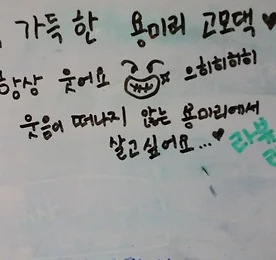 가득한 용미리 고모댁♥
항상 웃어요 으히히히히
웃음이 떠나지 않는 용미리에서
살고싶어요...♥
라붐